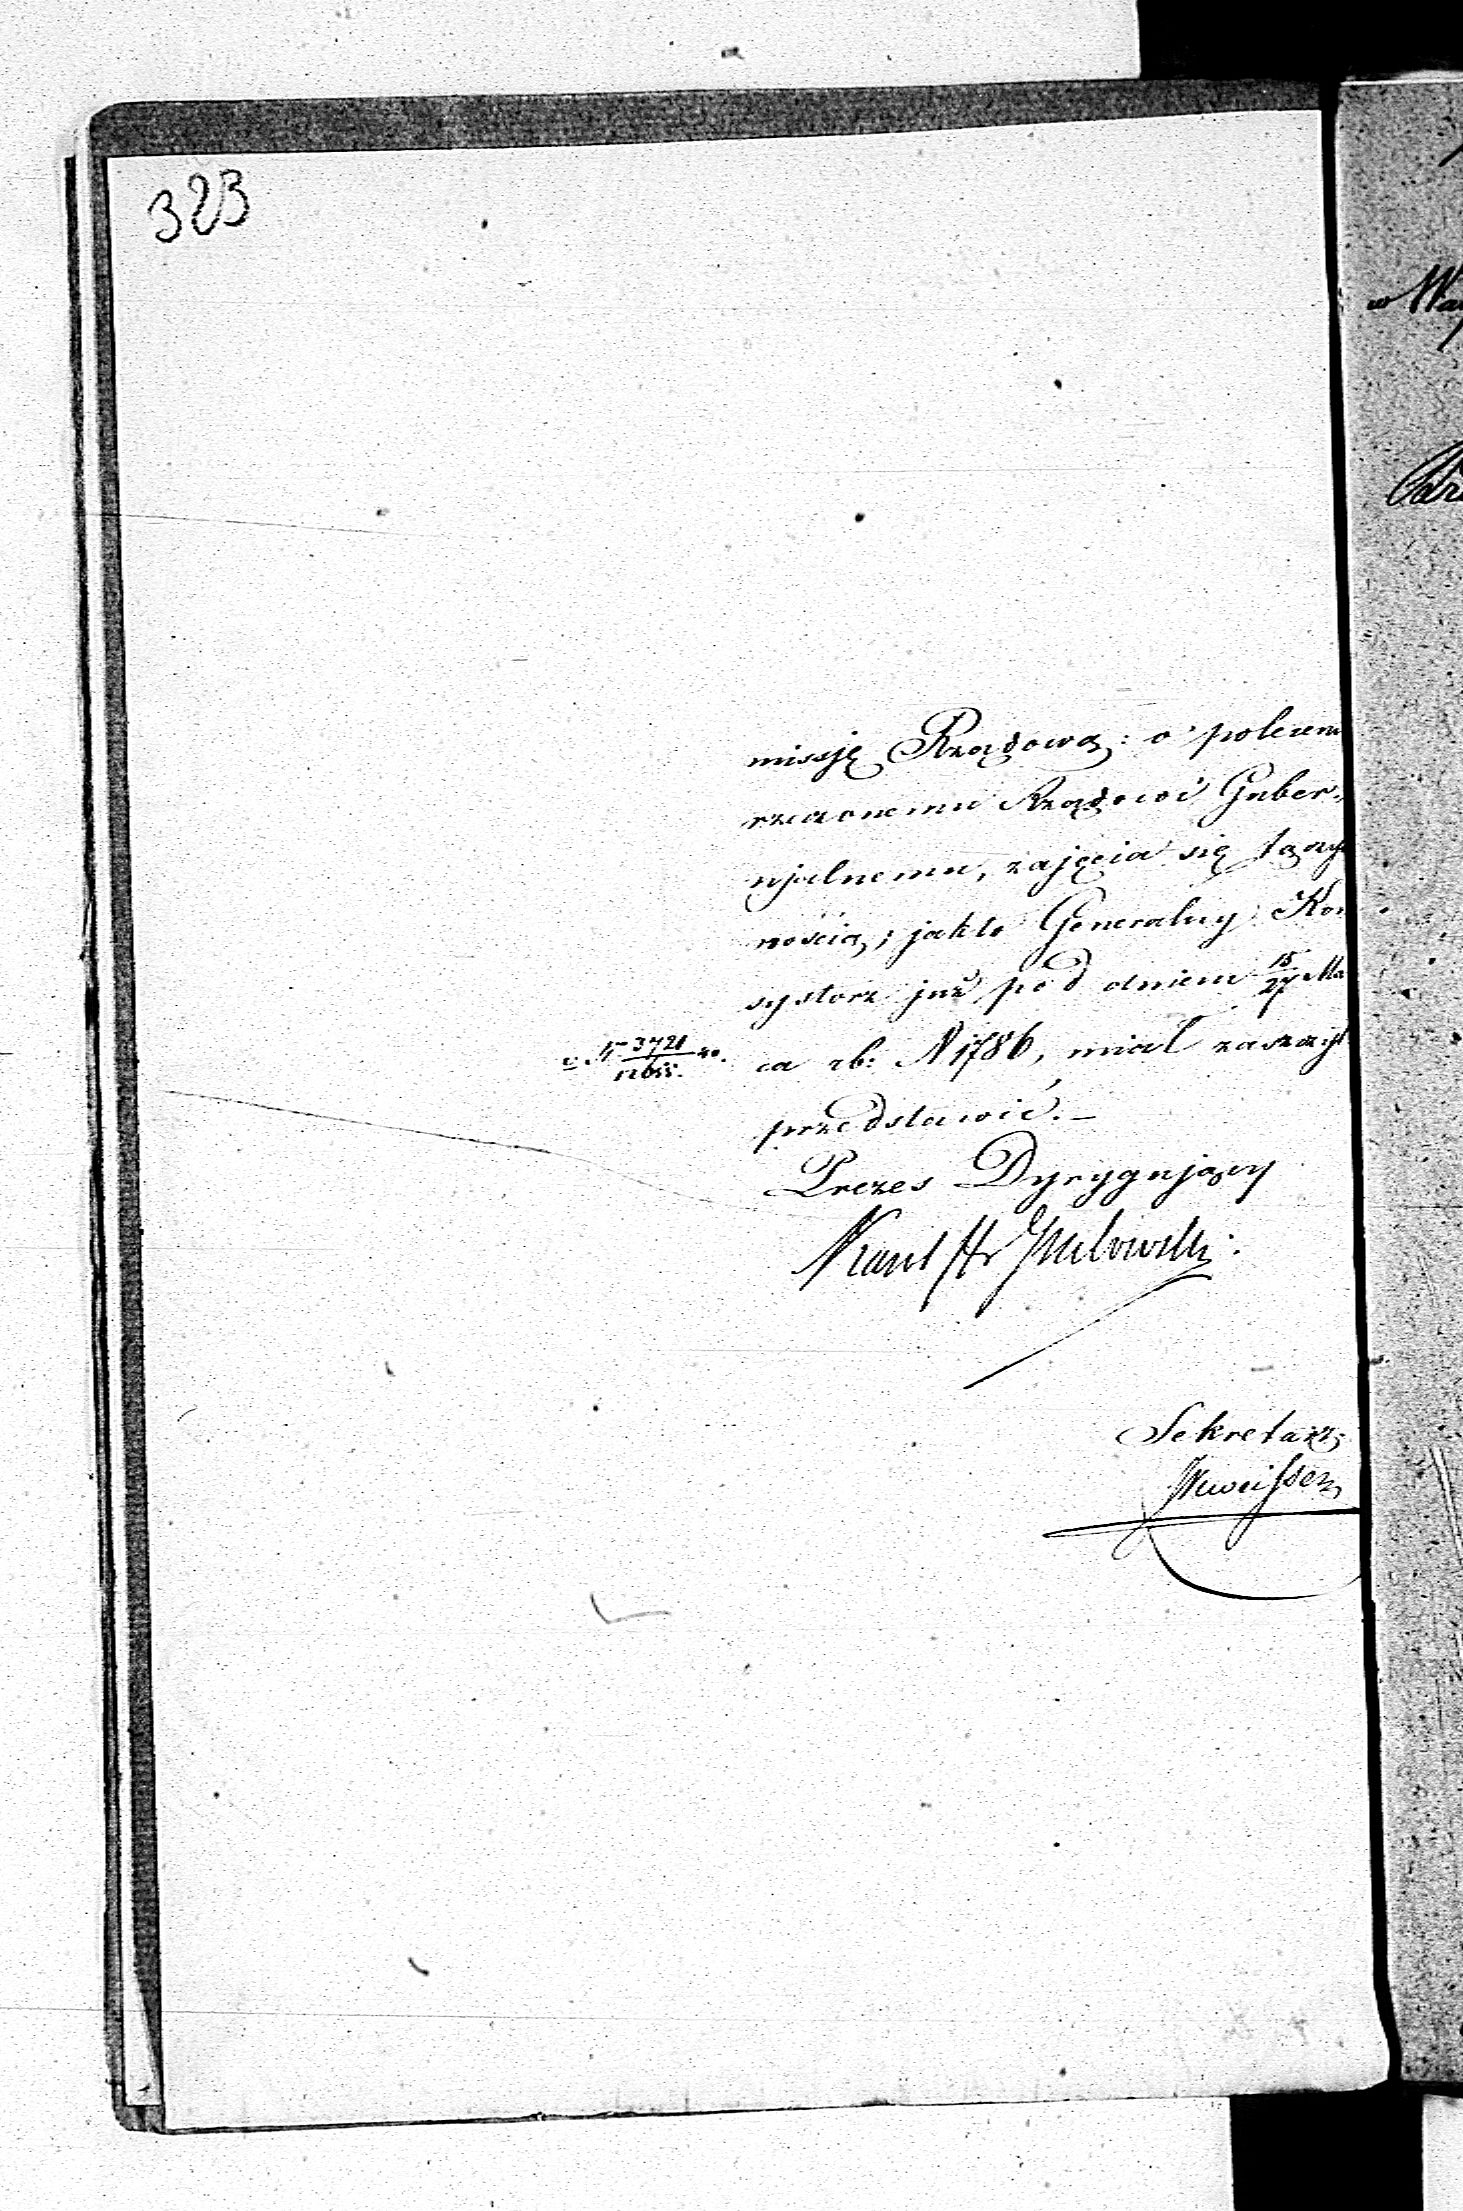 323
missję Rządową: o polecen
rzeczonemu Rządowi Guber-
njalnemu, zajęcia się tą czyn
nością; jak to Generalny Kon
systorz już pod dniem 15/27 Ma
ca rb: N 1786, miał zaszczyt
N 3721
przedstawić.—
Prezes Dyrygujący
Sekretarz